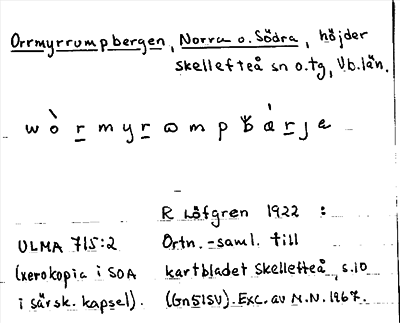 Orrmyrrumpbergen, Norra o. Södra, höjder
Skellefteå sn o. tg, Vb. län.
wòrmyrωmpbárjɐ
R Löfgren 1922 :
ULMA 715:2 Ortn.-saml. till
(xerokopia i SOA kartbladet Skellefteå, s.10
i särsk. kapsel). (Gn51SV). Exc. av N.N. 1967.